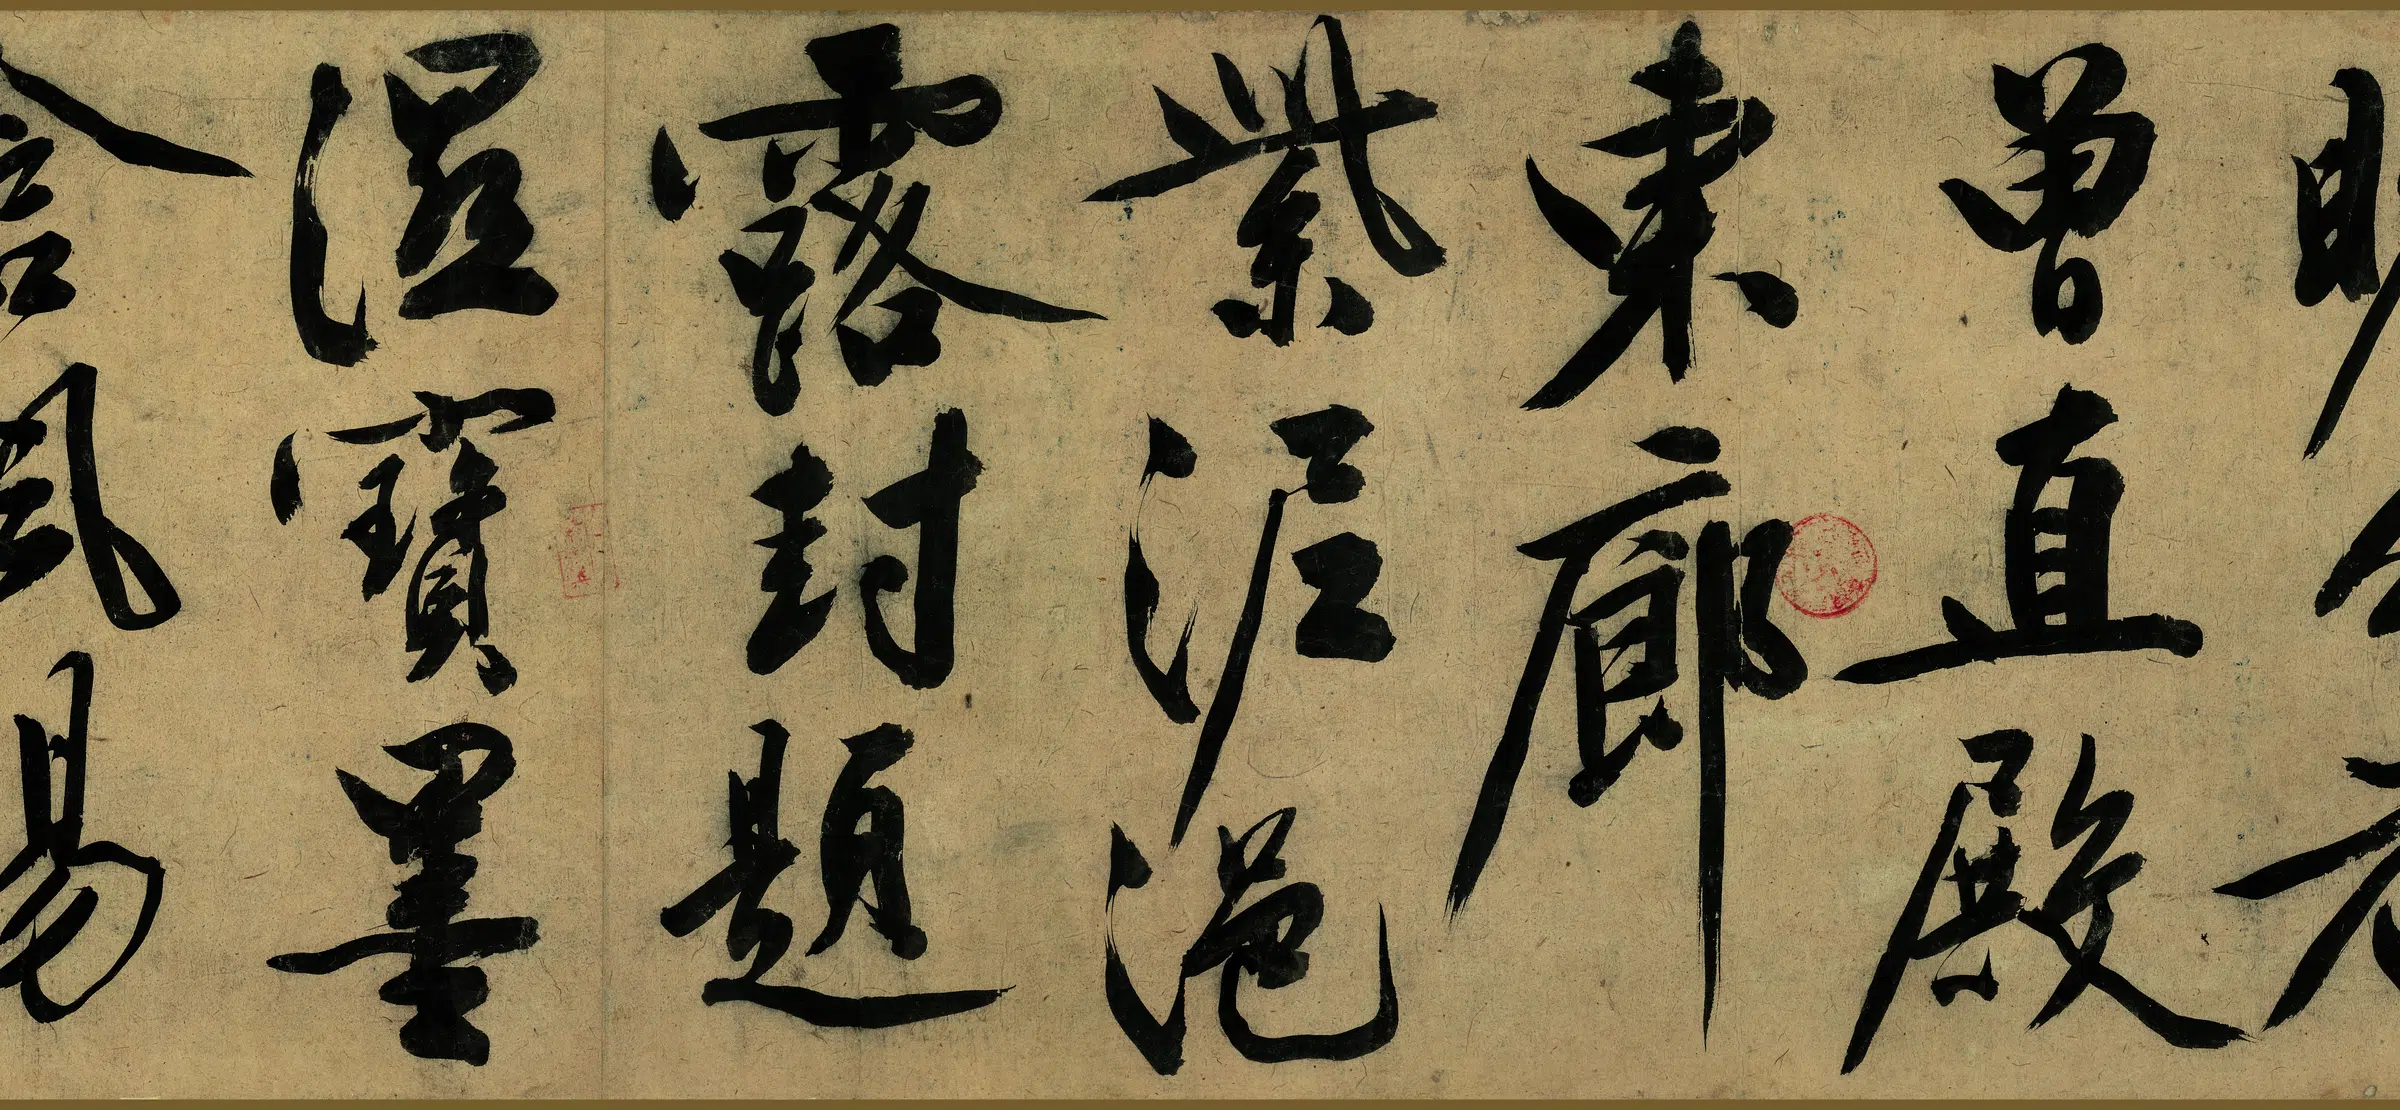 曾直殿
東廊
紫泥浥
露封題
濕寶墨
含風易